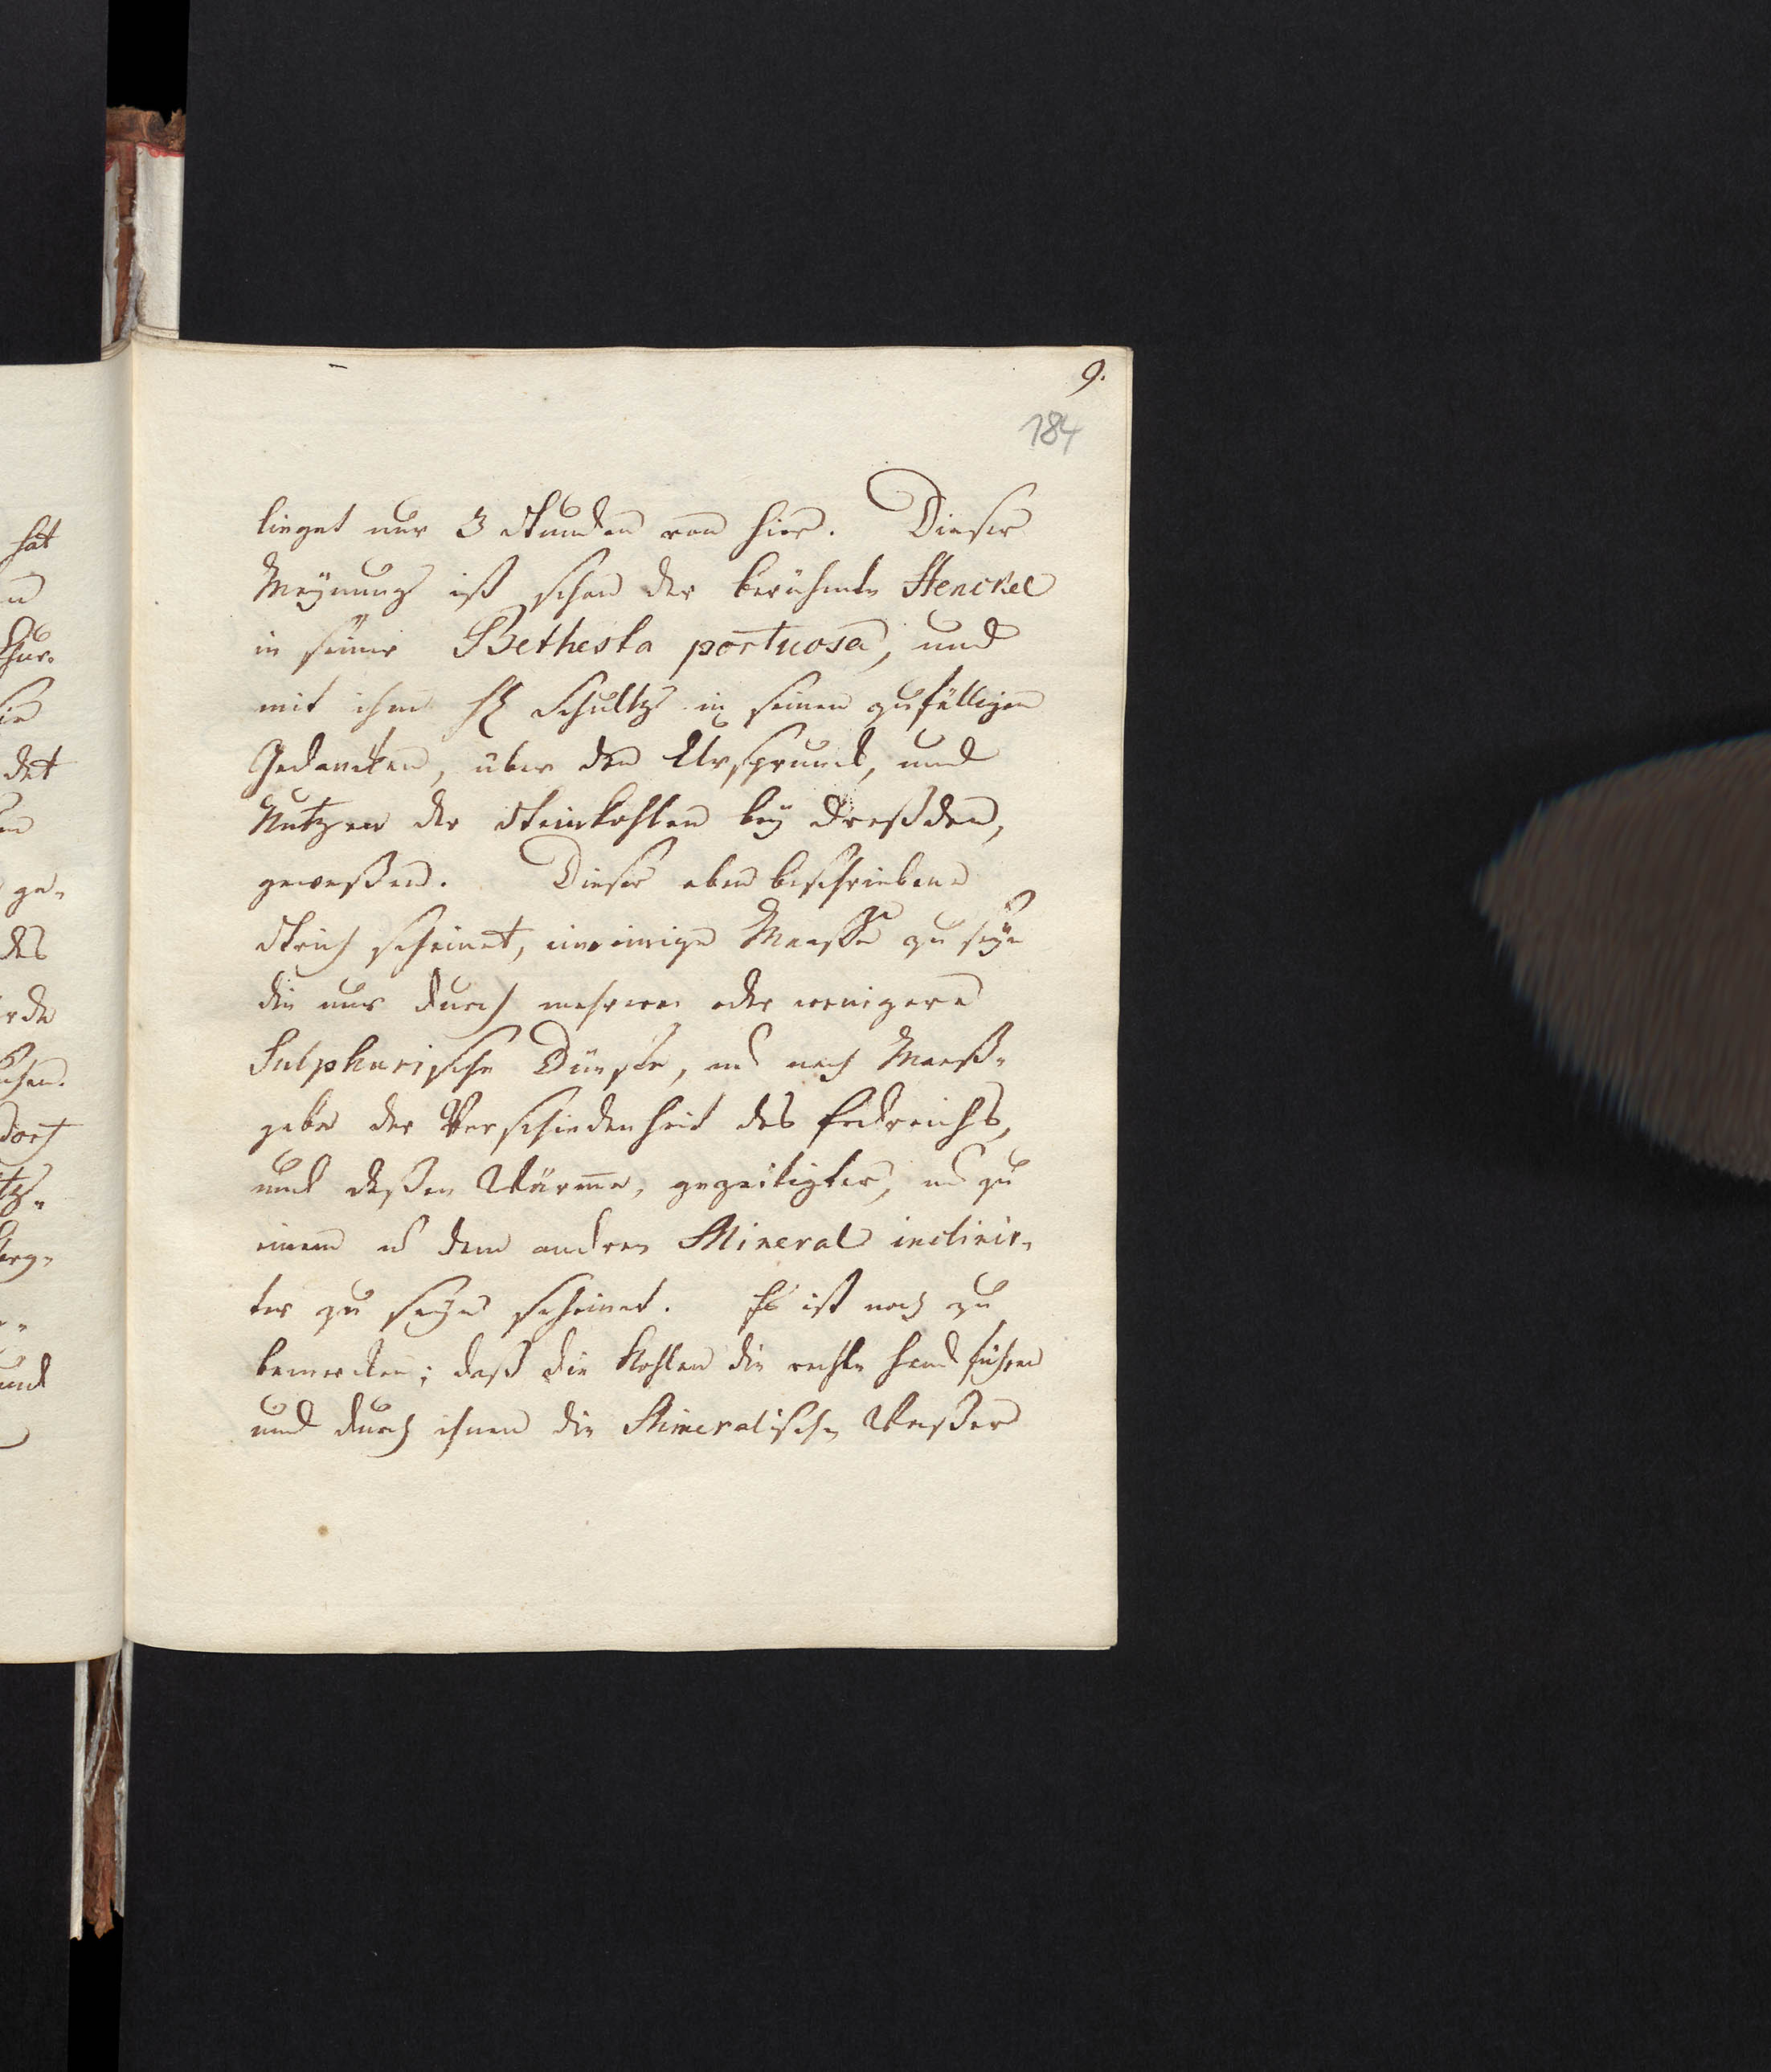 9.
184
lieget nur 3 Stunden von hier. Dieser
Meÿnung ist schon der berühmte Henckel
in seiner Bethesta portuosa, und
mit ihm H Schultz in seinen zufälligen
Gedancken, über den Ursprund, und
Nutzen der Steinkohlen beÿ Dreßden,
geweßen. Dieser oben beschriebene
Strich scheinet, eine einige Masse zu seÿn
die nur durch mehrere oder wenigere
Sulphurische Dünste, und nach Maaß-
gabe der Verschiedenheit des Erdreichs,
und deßen Wärme, gezeitigter, und zu
einem u dem andren Mineral inclinir-
ter zu seÿn scheinet. Es ist noch zu
bemercken; daß die Kohlen die rechte Hand führen
und durch ihnen die Mineralischen Waßer
hat
det
ge-
des
dorf
und